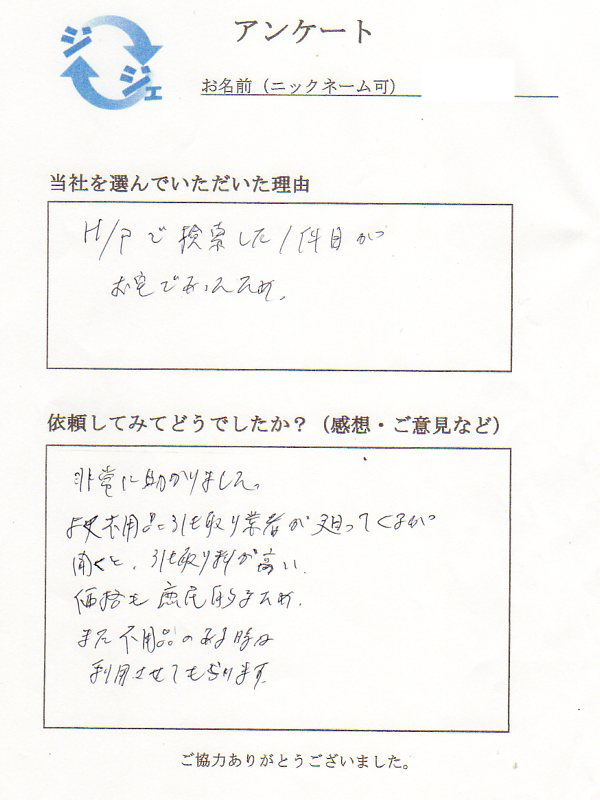 ジジェ
アンケート
お名前（ニックネーム可）
当社を選んでいただいた理由
H/Pで検索した1件目が
お宅であったため。
依頼してみてどうでしたか？（感想・ご意見など）
非常に助かりました。
不用品引き取り業者が廻ってくるが
聞くと、引き取り料が高い。
価格も庶民的なため、
また不用品のある時は
利用させてもらります。
ご協力ありがとうございました。